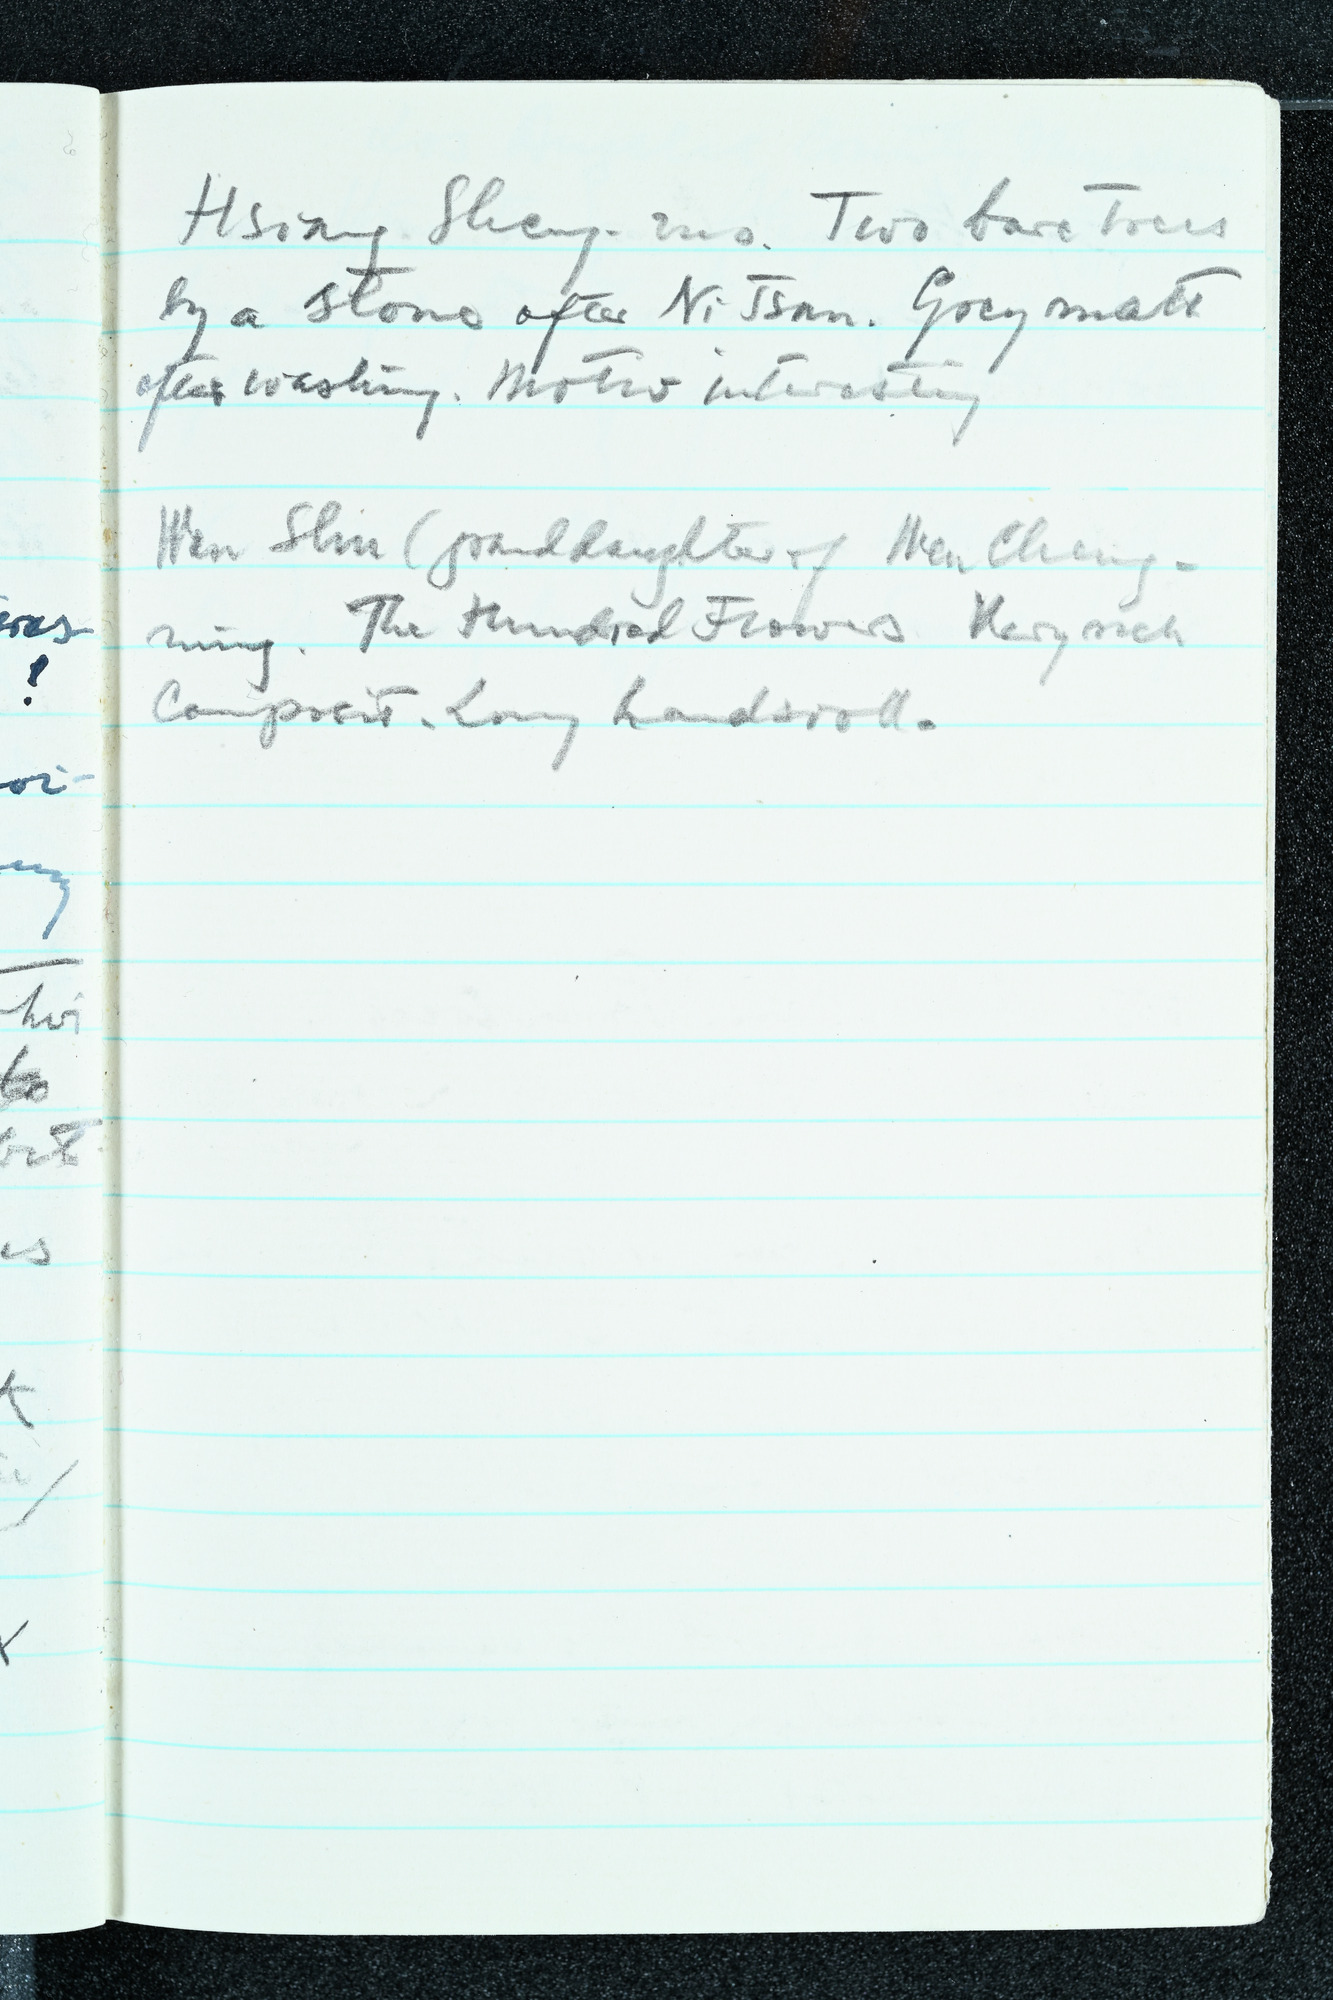 Hsiang Sheng-mo. Two bare trees
by a stone after Ni Tsan. Grey matt
after washing. Motiv interesting
Wen Shu (granddaughter of Wen Cheng-
ming. The Hundred Flowers Very rich
Composit. Long handscroll.